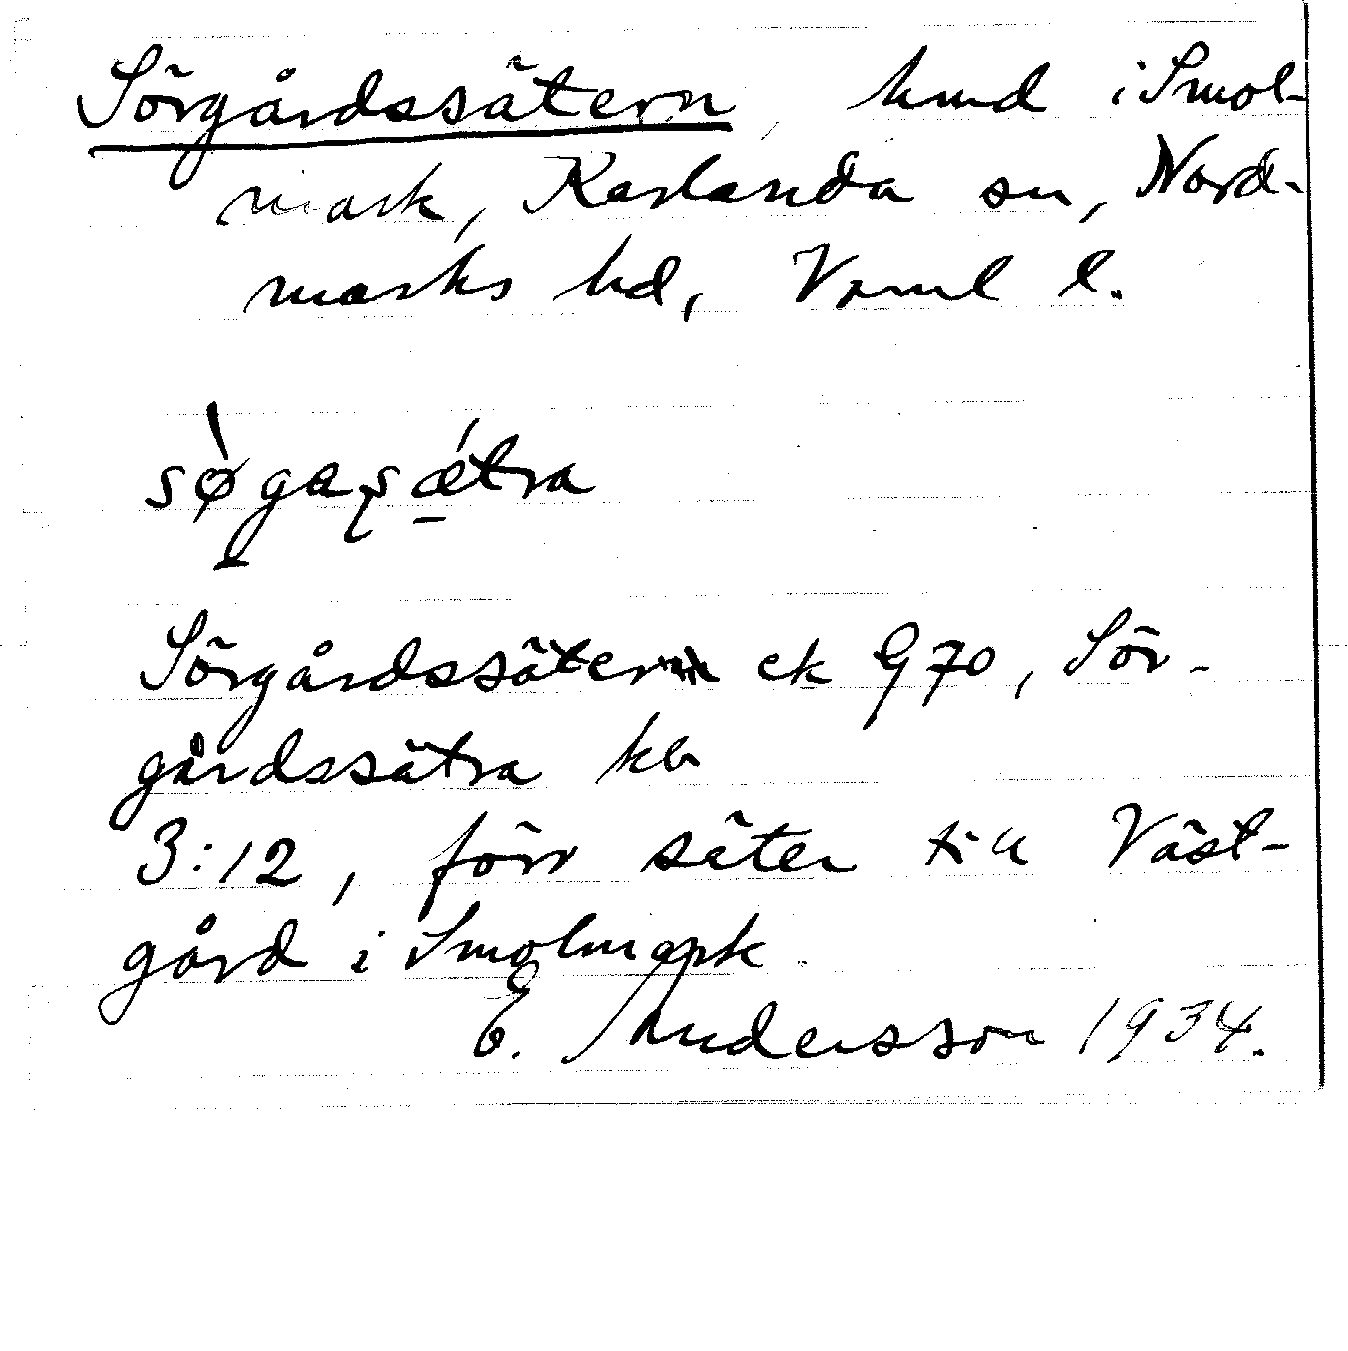 Sörgårdssätern, hmd i Smol-
mark, Karlanda sn, Nord-
marks hd, Vrml l.
sø̀gaşǽtra
Sörgårdssäter ek G 70, Sör-
gårdssätra kb
3:12, förr säter till Väst-
gård i Smolmark
E. Andersson 1934.